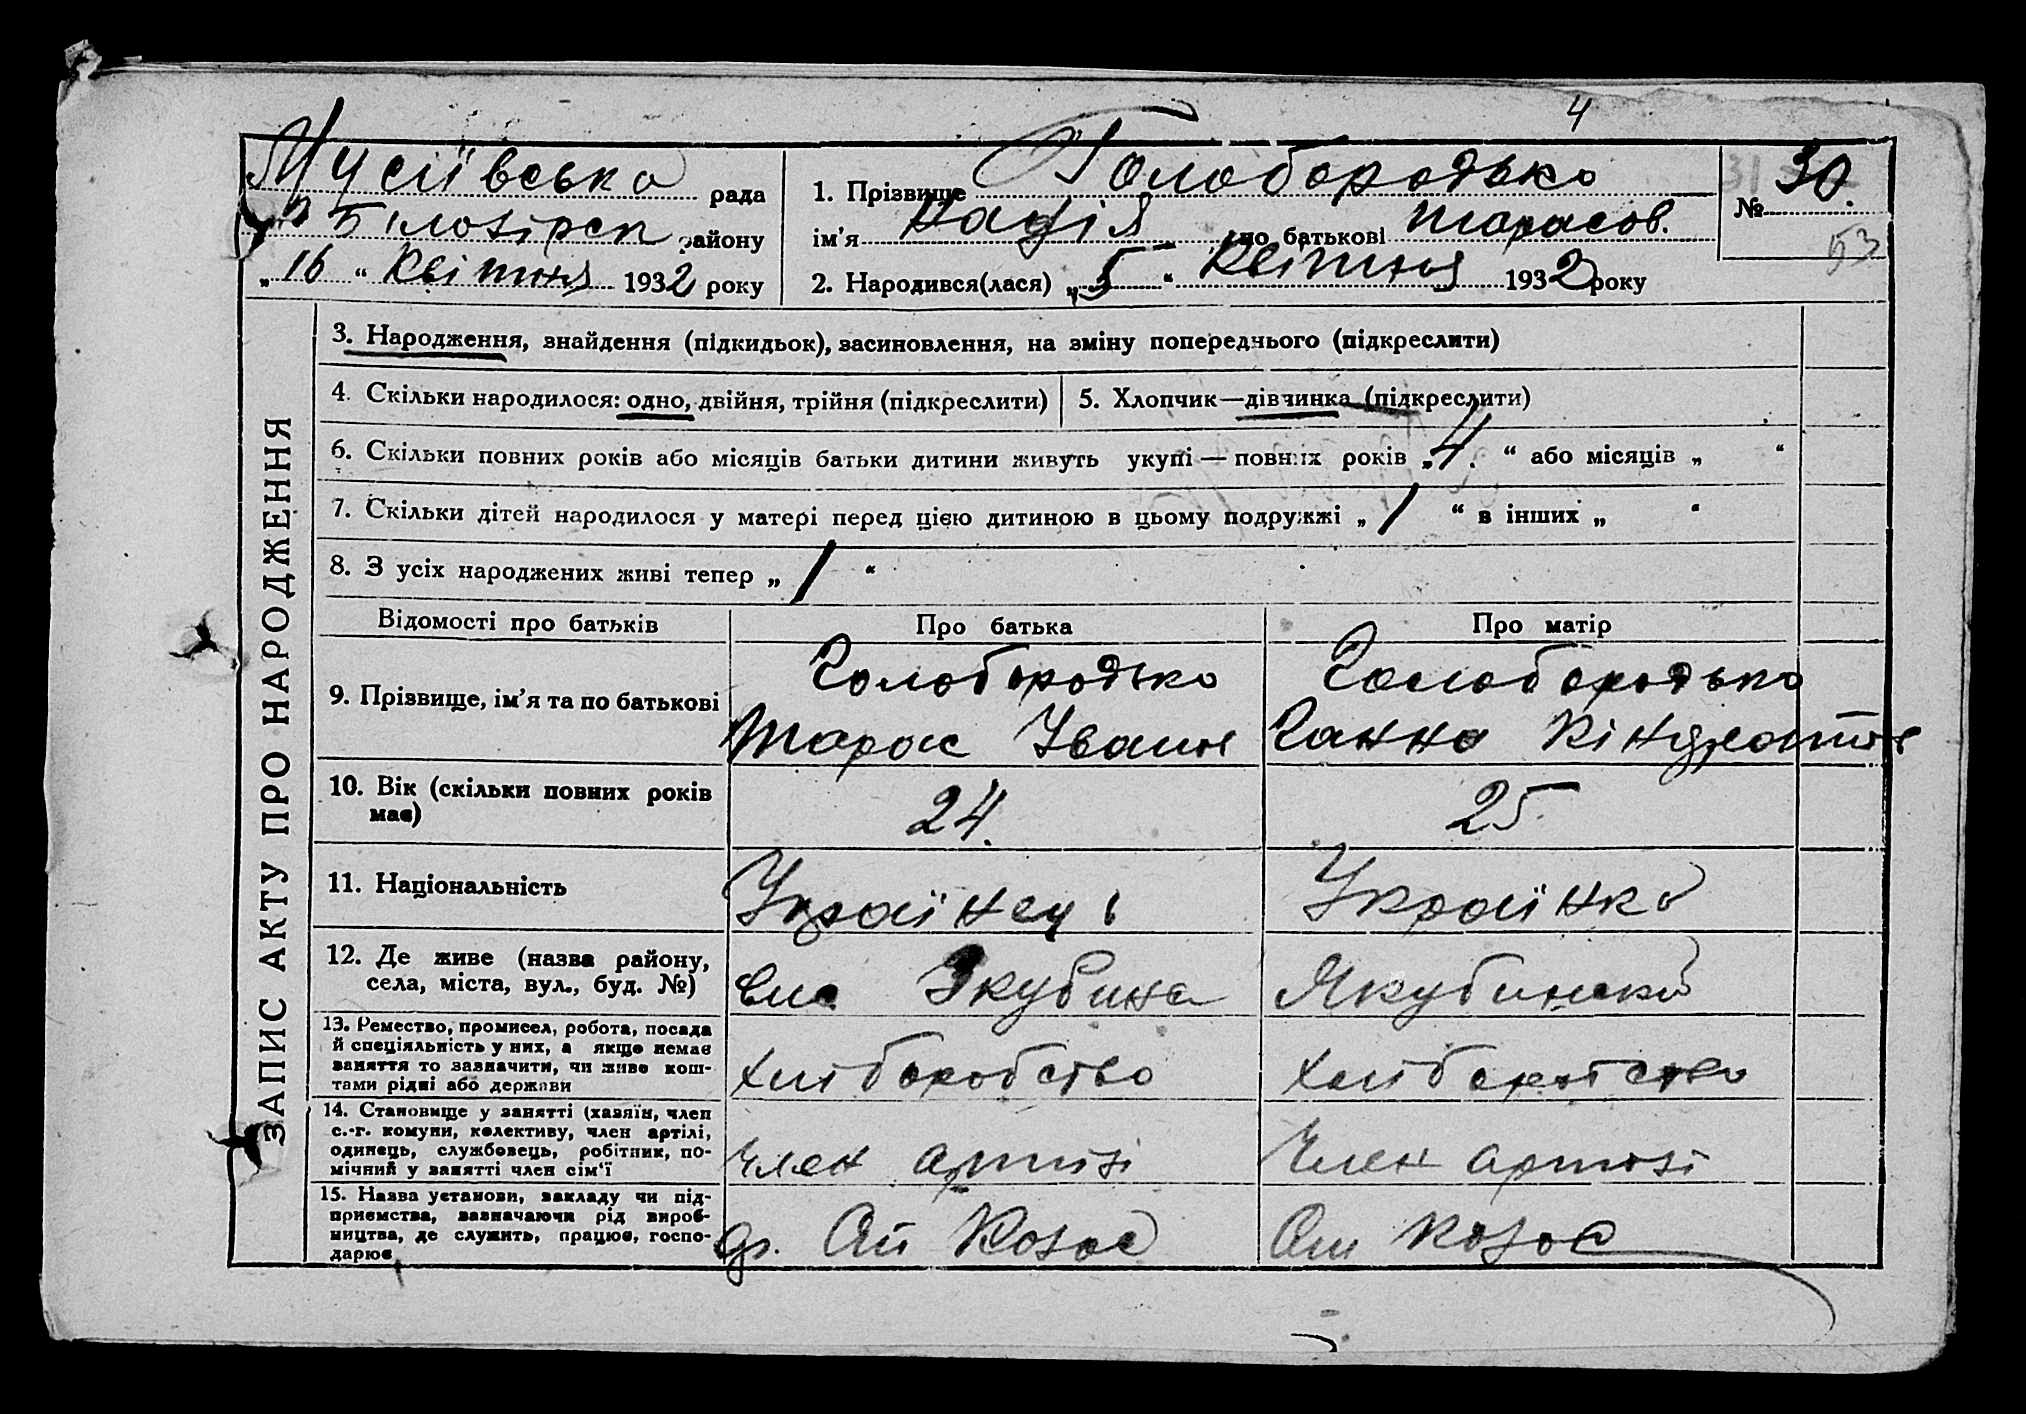 4
Мусіївська рада
Білозірсп району
„ 16 “ Квітня 1932 року
1. Прізвище Голобородько
ім’я Надія по батькові Тарасов.
2. Народився(лася) „ 5 “ Квітня 1932 року
31 № 30.
53
ЗАПИС АКТУ ПРО НАРОДЖЕННЯ
3. Народження, знайдення (підкидьок), засиновлення, на зміну попереднього (підкреслити)
4. Скільки народилося: одно, двійня, трійня (підкреслити)
5. Хлопчик—дівчинка (підкреслити)
6. Скільки повних років або місяців батьки дитини живуть укупі — повних років „ 4. “ або місяців „ “
7. Скільки дітей народилося у матері перед цією дитиною в цьому подружжі „ 1 “ в інших „ “
8. З усіх народжених живі тепер „ 1 “
Відомості про батьків
Про батька
Про матір
9. Прізвище, ім’я та по батькові
Голобородько
Тарас Іван
Голобородько
Ганна Кіндратов
10. Вік (скільки повних років
має)
24.
25.
11. Національність
Українець
Українка
12. Де живе (назва району,
села, міста, вул., буд. №)
Якубина
Якубинска
13. Ремество, промисел, робота, посада
й спеціяльність у них, а якщо немає
заняття то зазначити, чи живе кош-
тами рідні або держави
хліборобство
хліборобство
14. Становище у занятті (хазяїн, член
с.-г. комуни, колективу, член артілі,
одинець, службовець, робітник, по-
мічний у занятті член сім‘ї
Член артілі
Член артілі
15. Назва установи, закладу чи під-
приємства, зазначаючи рід вироб-
ництва, де служить, працює, госпо-
дарює